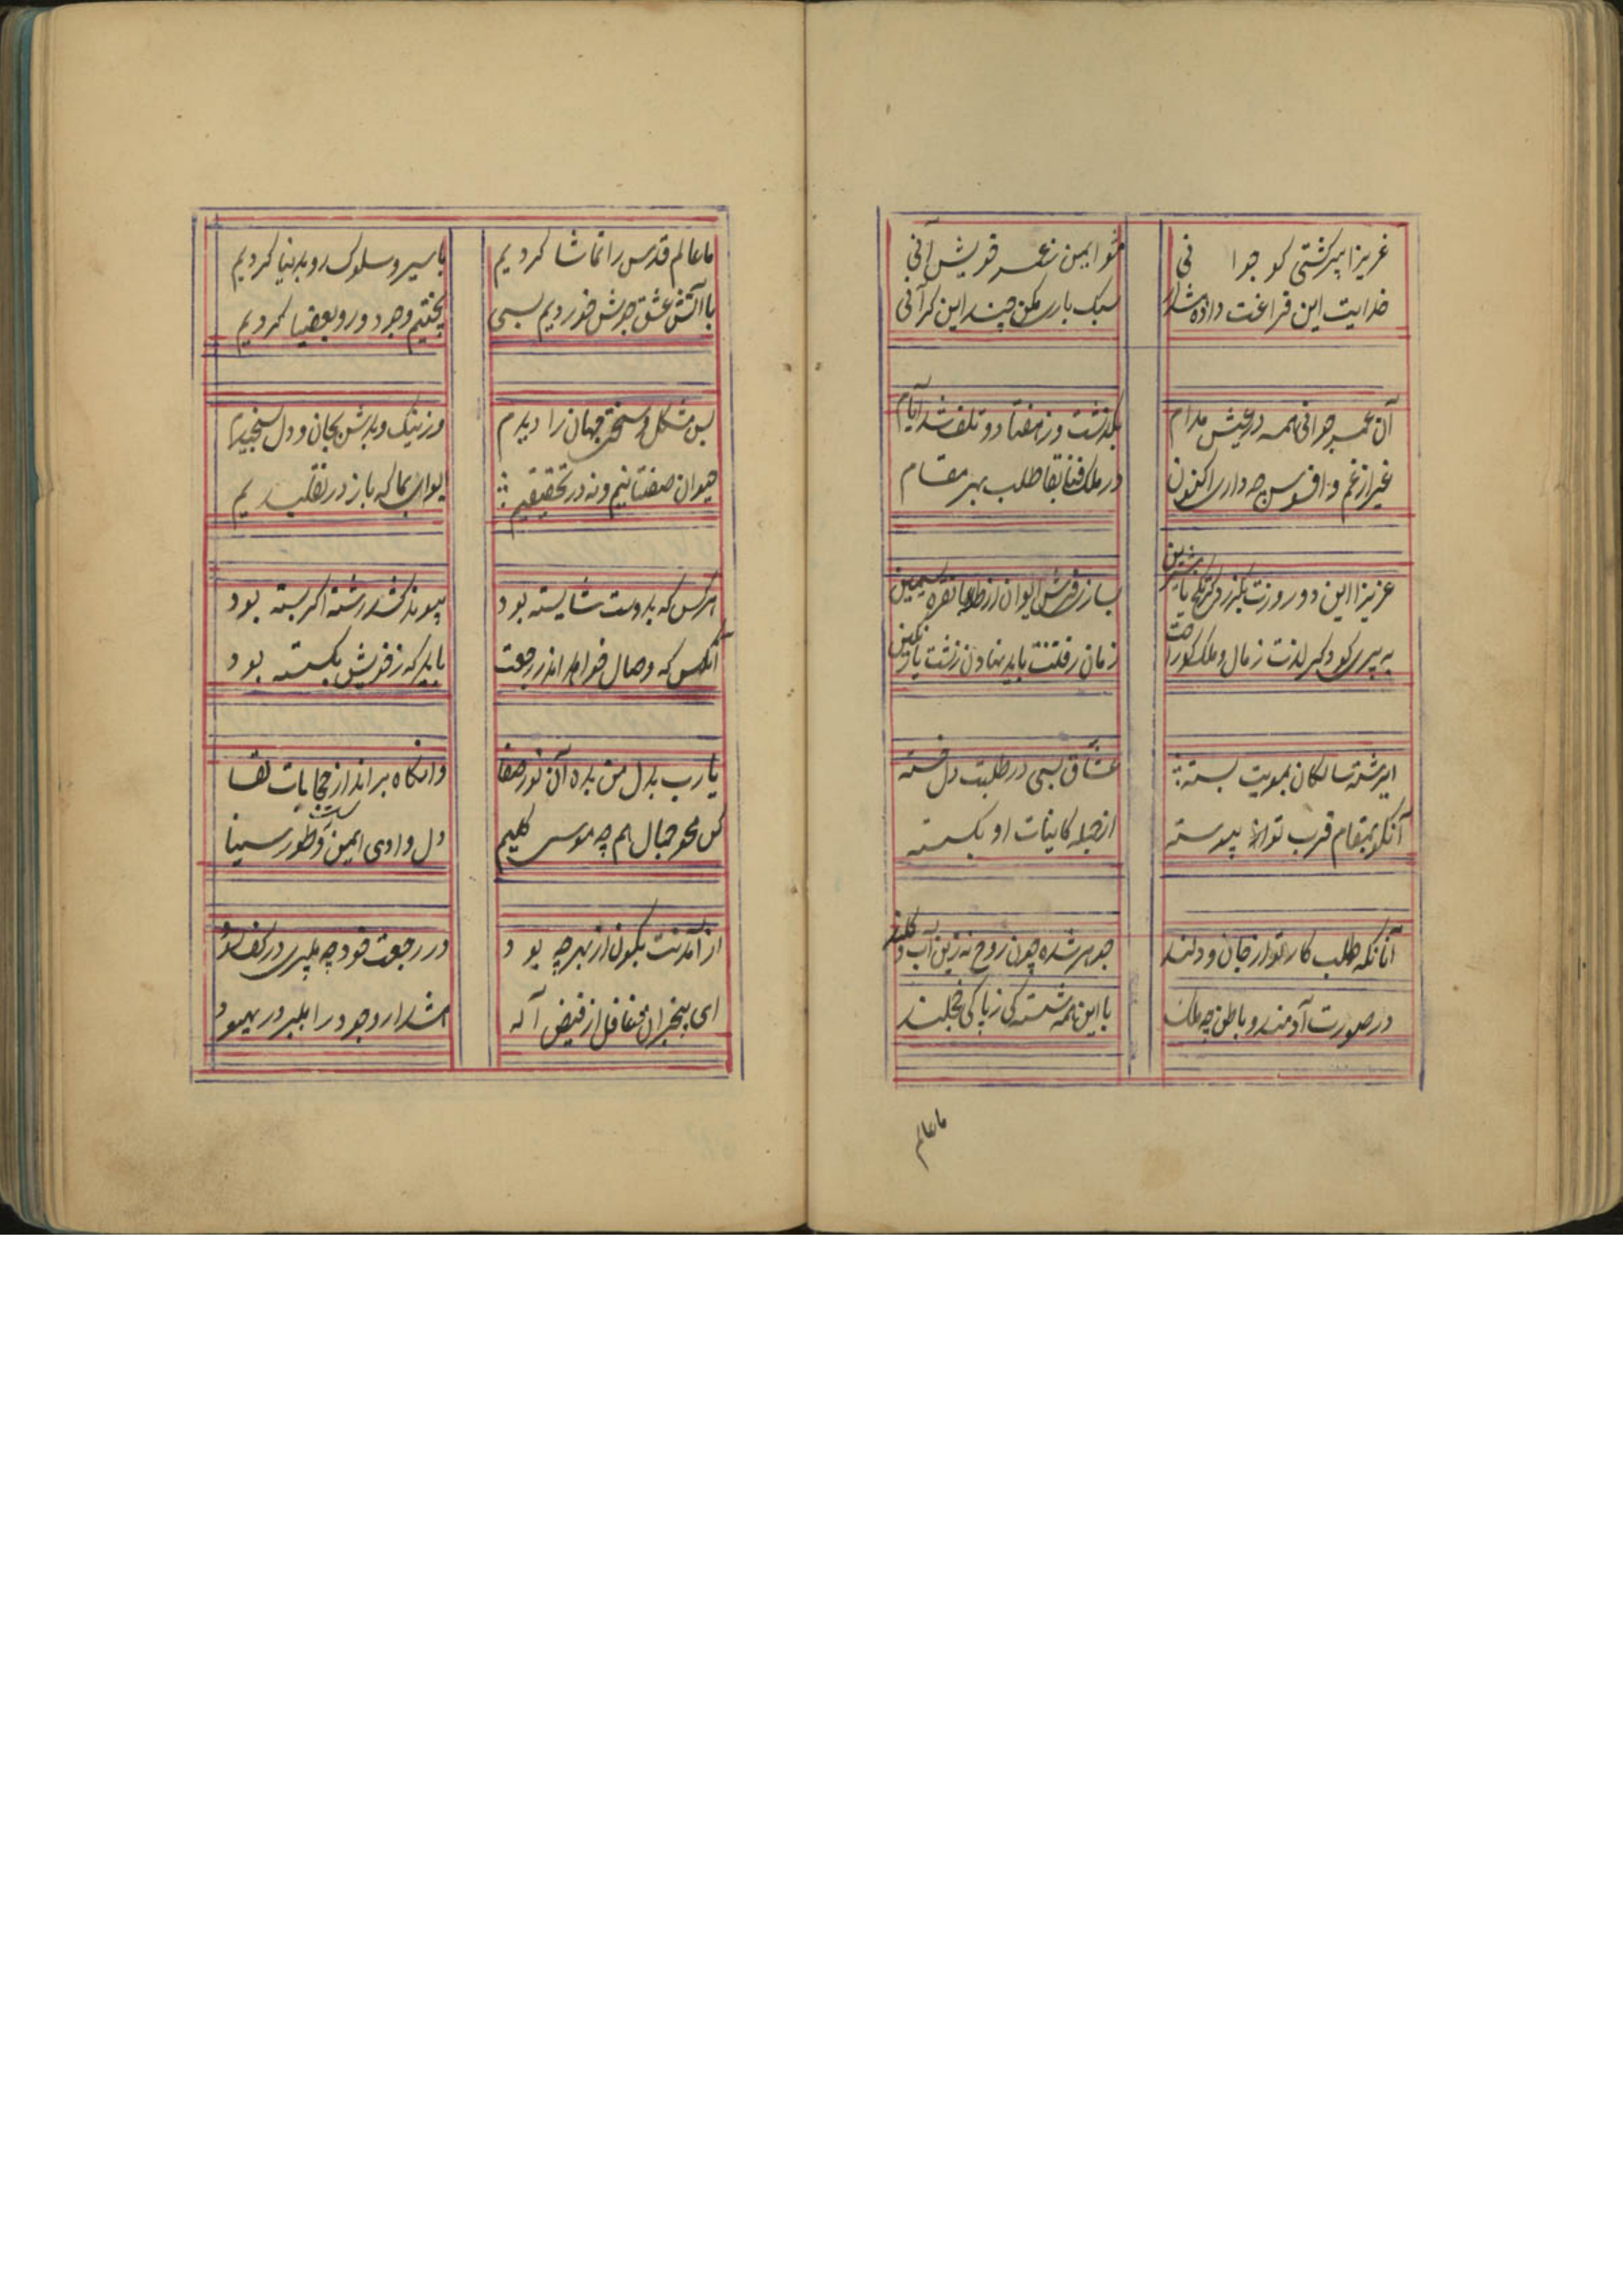 عزیزا پیر گشتی کو جوانی
مشو ایمن ز عمر خویش آنی
خدایت این فراغت داده هشدار
سبک باری مکن چند این گرانی
آن عمر جوانی همه در عیش مدام
بگذشت و ز هفتاد و تلف شد ایام
غیر از غم و افسوس چه داری اکنون
در ملک فنا بقا طلب بهر مقام
عزیزا این دو روزت بگذرد گر تلخ یا شیرین
بساز فرش ایوان از طلا یا نقره سیمین
به پیری کو دگر لذت ز مال و ملک کو راحت
زمان رفتنت باید نهادن زشت یا رنگین
ای رشته سالکان بمویت بسته
عشاق بسی در طلبت دل خسته
آنکو بمقام قرب تو پیوسته
از جمله کاینات او بگسسته
آنانکه طلب کار تو از جان و دلند
جوهر شده چون روح نه زین آب و گلند
در صورت آدمند و باطن چه ملک
با این همه شستگی ز پاکی خجلند
ما عالم
ما عالم قدس را تماشا کردیم
با سیر و سلوک رو بدنیا کردیم
با آتش عشق جوش خوردیم بسی
پختیم وجود و رو بعقبا کردیم
بس مشکل و سختی جهان را دیدم
وز نیک و بدش بجان و دل سنجیدم
حیوان صفتانیم و نه در تحقیقیم
ایوای بما که باز در تقلیدیم
هر کس که بدوست شایسته بود
پیوند کند رشته اگر بسته بود
آنکس که وصال خواهد اندر رجعت
باید که ز خویش بگسسته بود
یا رب بدل من بده آن نور صفا
وانگاه بر انداز حجابات لقا
کن محو جمال هم چه موسی کلیم
دل وادی ایمن است و طور سینا
از آمدنت بگون از بهر چه بود
در رجعت خود چه میبری در کف سود
ای بیخبران غافل از فیض آله
هشدار وجود را مبر در بیهود